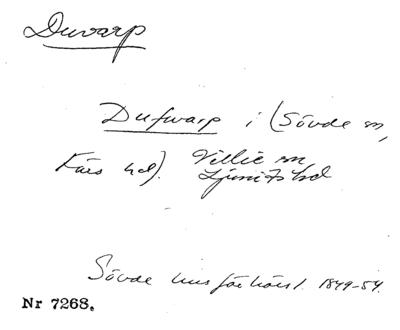 Duvarp
Dufwarp i (Sövde sn,
Färs hd). Villie sn,
Ljunits hd
Sövde husförhörsl. 1849-54.
Nr 7268.